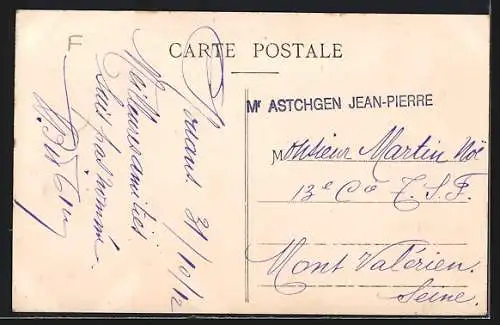 F
CARTE POSTALE
31/10/12
Meilleures amitiés
Mr ASTCHGEN JEAN-PIERRE
Monsieur Martin Noë
13e Cie T.S.F.
Mont Valérien.
Seine.